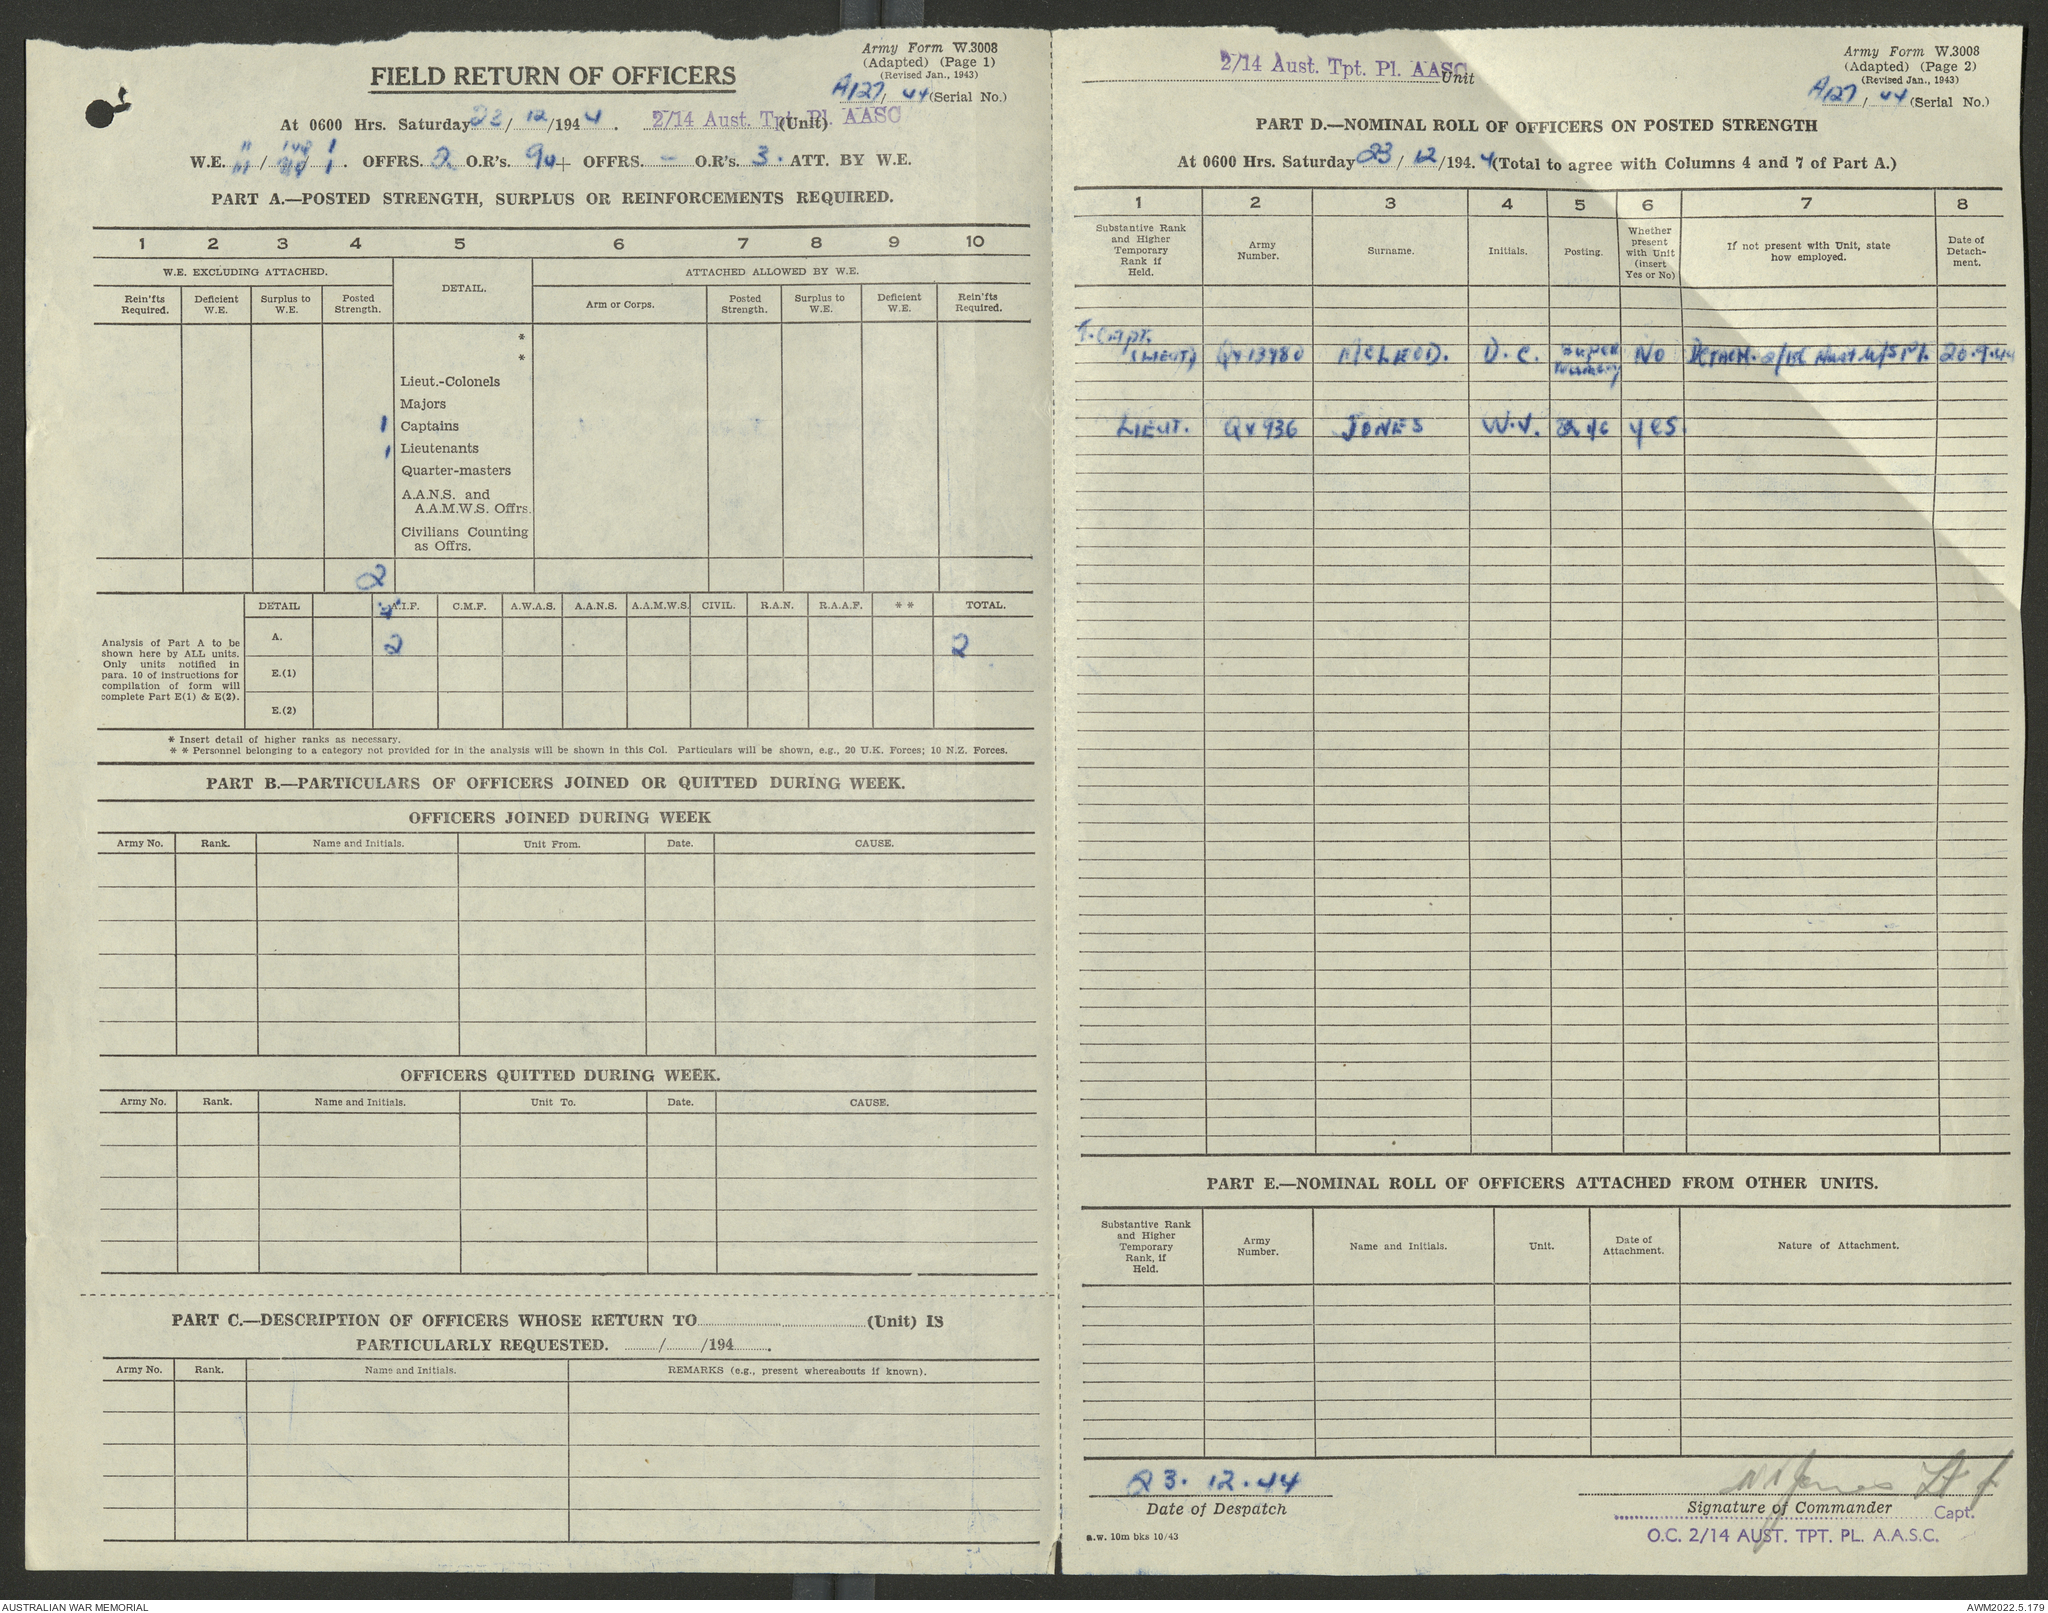 Army Form W.3008
(Adapted) (Page 1)
(Revised Jan., 1943)
FIELD RETURN OF OFFICERS
A127/44 (Serial No.)
At 0600 Hrs. Saturday 23/12/1944. 2/14 Aust. Tpt. Pl. AASC (Unit)
W.E. OFFRS. 2 O.R's. 94 + OFFRS. - O.R's. 3. ATT. BY W.E.
PART A.—POSTED STRENGTH, SURPLUS OR REINFORCEMENTS REQUIRED.
1 2 3 4 5 6 7 8 9 10
W.E. EXCLUDING ATTACHED. DETAIL. ATTACHED ALLOWED BY W.E.
Rein'fts Required. Deficient W.E. Surplus to W.E. Posted Strength. Arm or Corps. Posted Strength. Surplus to W.E. Deficient W.E. Rein'fts Required.
*
*
Lieut.-Colonels
Majors
1 Captains
1 Lieutenants
Quarter-masters
A.A.N.S. and
A.A.M.W.S. Offrs.
Civilians Counting
as Offrs.
2
DETAIL A.I.F. C.M.F. A.W.A.S. A.A.N.S. A.A.M.W.S. CIVIL. R.A.N. R.A.A.F. * * TOTAL.
Analysis of Part A to be
shown here by ALL units.
Only units notified in
para. 10 of instructions for
compilation of form will
complete Part E(1) & E(2).
A. 2 2
E.(1)
E.(2)
* Insert detail of higher ranks as necessary.
* * Personnel belonging to a category not provided for in the analysis will be shown in this Col. Particulars will be shown, e.g., 20 U.K. Forces; 10 N.Z. Forces.
PART B.—PARTICULARS OF OFFICERS JOINED OR QUITTED DURING WEEK.
OFFICERS JOINED DURING WEEK
Army No. Rank. Name and Initials. Unit From. Date. CAUSE.
OFFICERS QUITTED DURING WEEK.
Army No. Rank. Name and Initials. Unit To. Date. CAUSE.
PART C.—DESCRIPTION OF OFFICERS WHOSE RETURN TO (Unit) IS
PARTICULARLY REQUESTED. / /194 .
Army No. Rank. Name and Initials. REMARKS (e.g., present whereabouts if known).
2/14 Aust. Tpt. Pl. AASC Unit
Army Form W.3008
(Adapted) (Page 2)
(Revised Jan., 1943)
A127/44 (Serial No.)
PART D.—NOMINAL ROLL OF OFFICERS ON POSTED STRENGTH
At 0600 Hrs. Saturday 23/12/194.4 (Total to agree with Columns 4 and 7 of Part A.)
1 2 3 4 5 6 7 8
Substantive Rank and Higher Temporary Rank if Held. Army Number. Surname. Initials. Posting. Whether present with Unit (insert Yes or No) If not present with Unit, state how employed. Date of Detachment.
T. Capt.
(LIEUT) QX13980 McLEOD. D. C. Super Numary NO DETACH. Aust. Pl. 20.9.44
LIEUT. QX936 JONES W.V. yes.
PART E.—NOMINAL ROLL OF OFFICERS ATTACHED FROM OTHER UNITS.
Substantive Rank and Higher Temporary Rank, if Held. Army Number. Name and Initials. Unit. Date of Attachment. Nature of Attachment.
23.12.44
Date of Despatch
Jones Lt
Signature of Commander
Capt.
O.C. 2/14 AUST. TPT. PL. A.A.S.C.
a.w. 10m bks 10/43
AUSTRALIAN WAR MEMORIAL
AWM2022.5.179